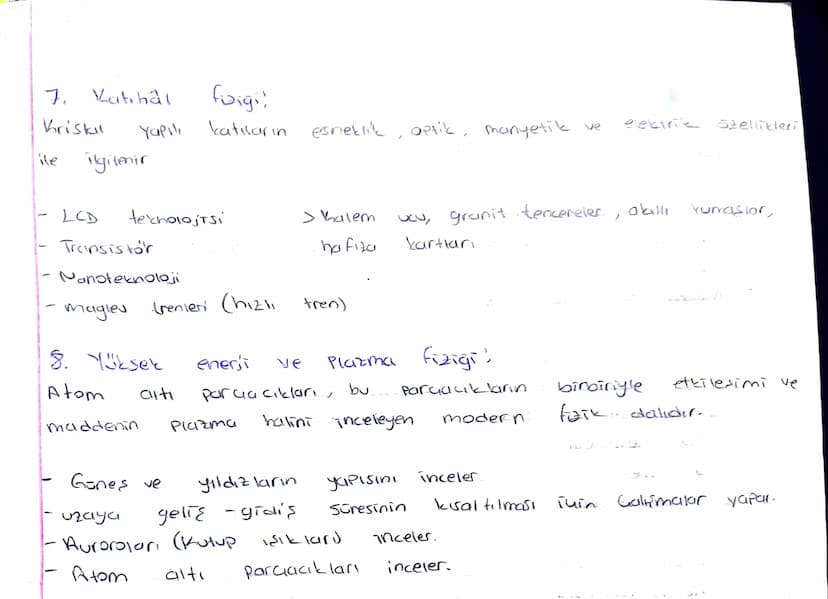 7. Katıhâl fiziği:
Kristal yapılı katıların esneklik, optik, manyetik ve elektrik özellikleri
ile ilgilenir
- LCD teknolojisi > Kalem ucu, granit tencereler, akıllı kumaşlar,
- Transistör hafıza kartları
- Nanoteknoloji
- magleu trenleri (hızlı tren)
8. Yüksek enerji ve Plazma fiziği:
Atom altı parçacıkları, bu parçacıkların birbiriyle etkileşimi ve
maddenin Plazma halini inceleyen modern fizik dalıdır.
- Güneş ve yıldızların yapısını inceler
- uzaya geliş - gidiş süresinin kısaltılması için çalışmalar yapar.
- Auroraları (Kutup ışıkları) inceler.
- Atom altı parçacıkları inceler.